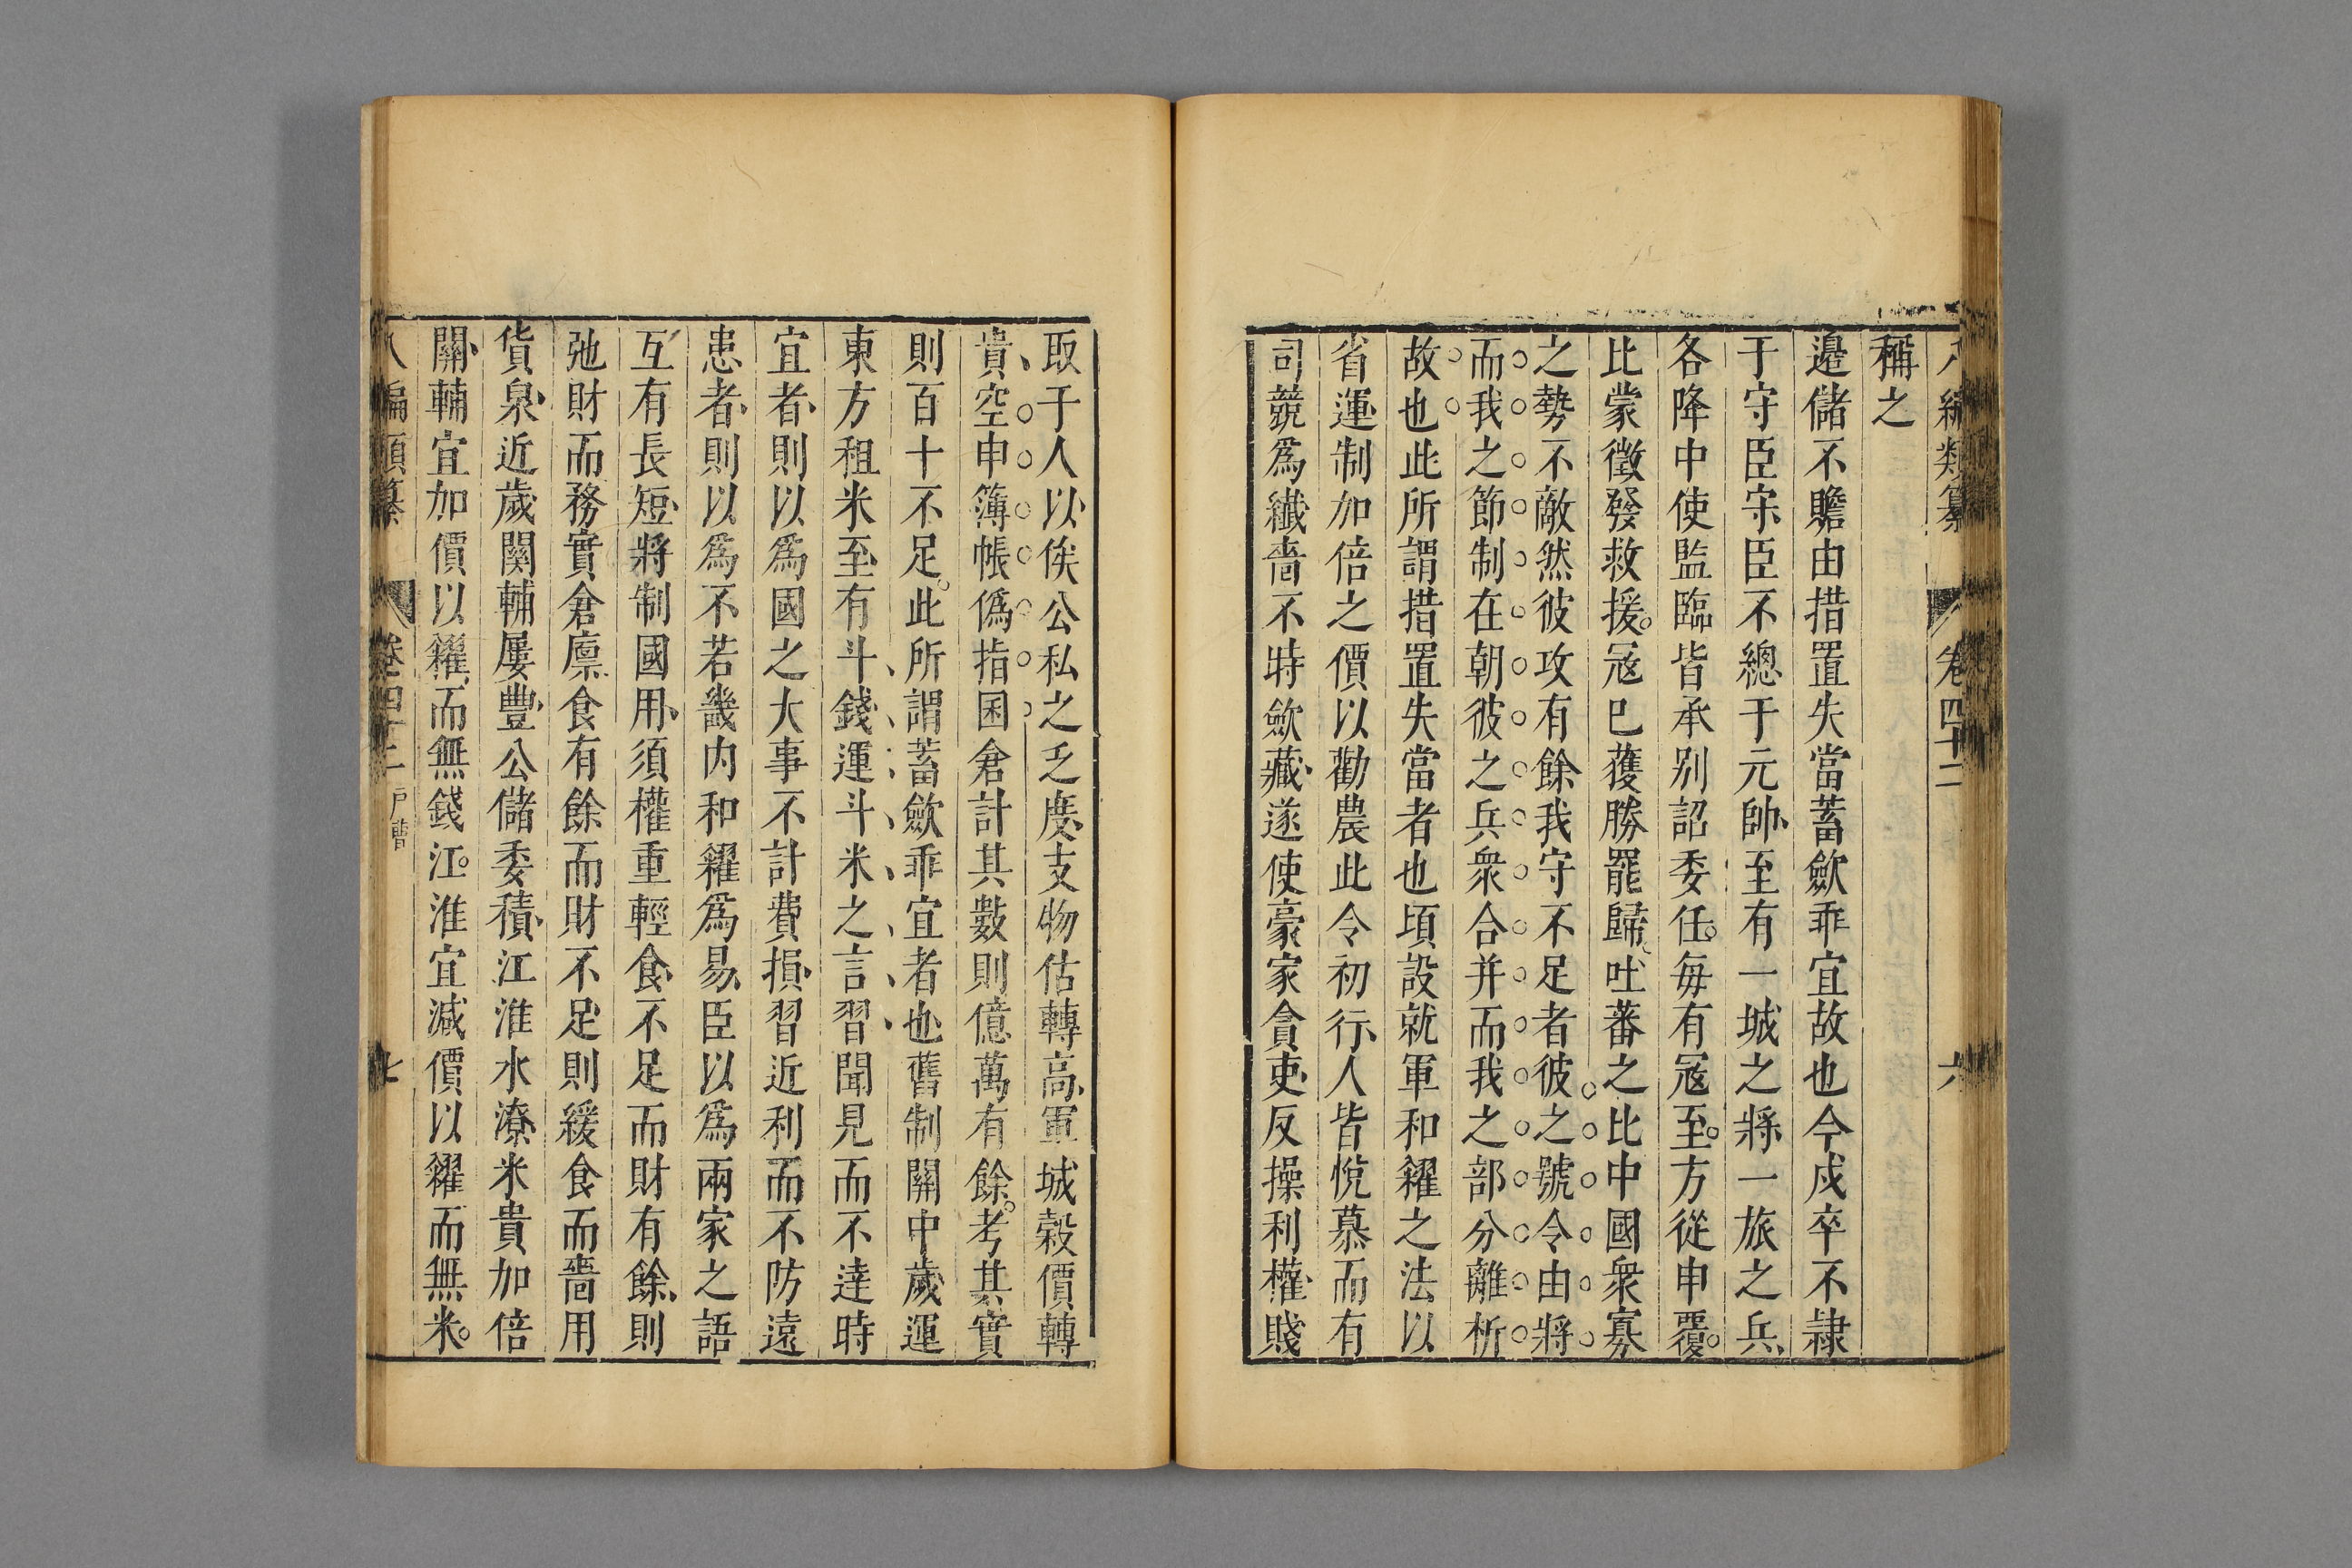 八編類纂 卷四十二 六
稱之
邊儲不贍由措置失當蓄歛乖宜故也今戍卒不隷
于守臣守臣不總于元帥至有一城之將一旅之兵
各降中使監臨皆承别詔委任每有冦至方從申覆
比蒙徵發救援冦巳獲勝罷歸吐蕃之比中國衆寡
之勢不敵然彼攻有餘我守不足者彼之號令由將
而我之節制在朝彼之兵衆合并而我之部分離析
故也此所謂措置失當者也頃設就軍和糴之法以
省運制加倍之價以勸農此令初行人皆悅慕而有
司競爲纎嗇不時歛藏遂使豪家貪吏反操利權賤
取于人以俟公私之乏度支物估轉高軍城穀價轉
貴空申簿帳僞指囷倉計其數則億萬有餘考其實
則百十不足此所謂蓄歛乖宜者也舊制關中歲運
東方租米至有斗錢運斗米之言習聞見而不達時
宜者則以爲國之大事不計費損習近利而不防遠
患者則以爲不若畿内和糴爲易臣以爲兩家之語
互有長短將制國用須權重輕食不足而財有餘則
弛財而務實倉廪食有餘而財不足則緩食而嗇用
貨泉近歲関輔屢豐公儲委積江淮水潦米貴加倍
關輔宜加價以糴而無錢江淮宜減價以糴而無米
八編類纂 卷四十二 戸曹 七